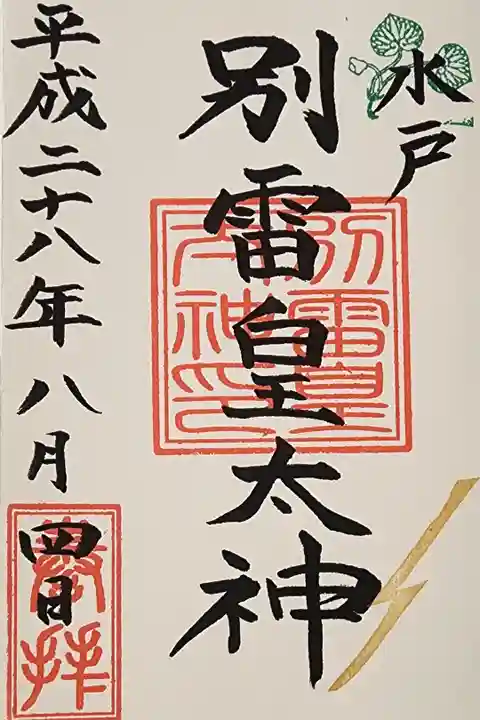 水戸
別雷皇太神
別雷皇太神印
平成二十八年八月四日
奉拝